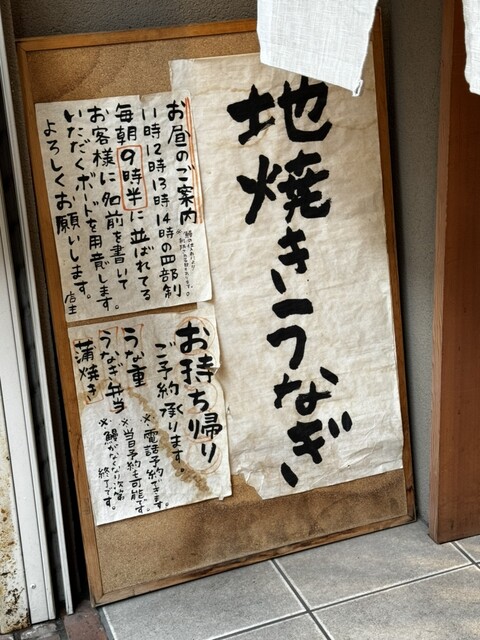 地焼きうなぎ
お昼のご案内
11時12時13時14時の四部制
毎朝9時半に並ばれてる
お客様に名前を書いて
いただくボードを用意します。
よろしくお願いします。
店主
お持ち帰り
ご予約承ります。
うな重
※電話予約できます。
うなぎ弁当
※当日予約も可能です。
蒲焼き
※鰻がなくなり次第
終了です。